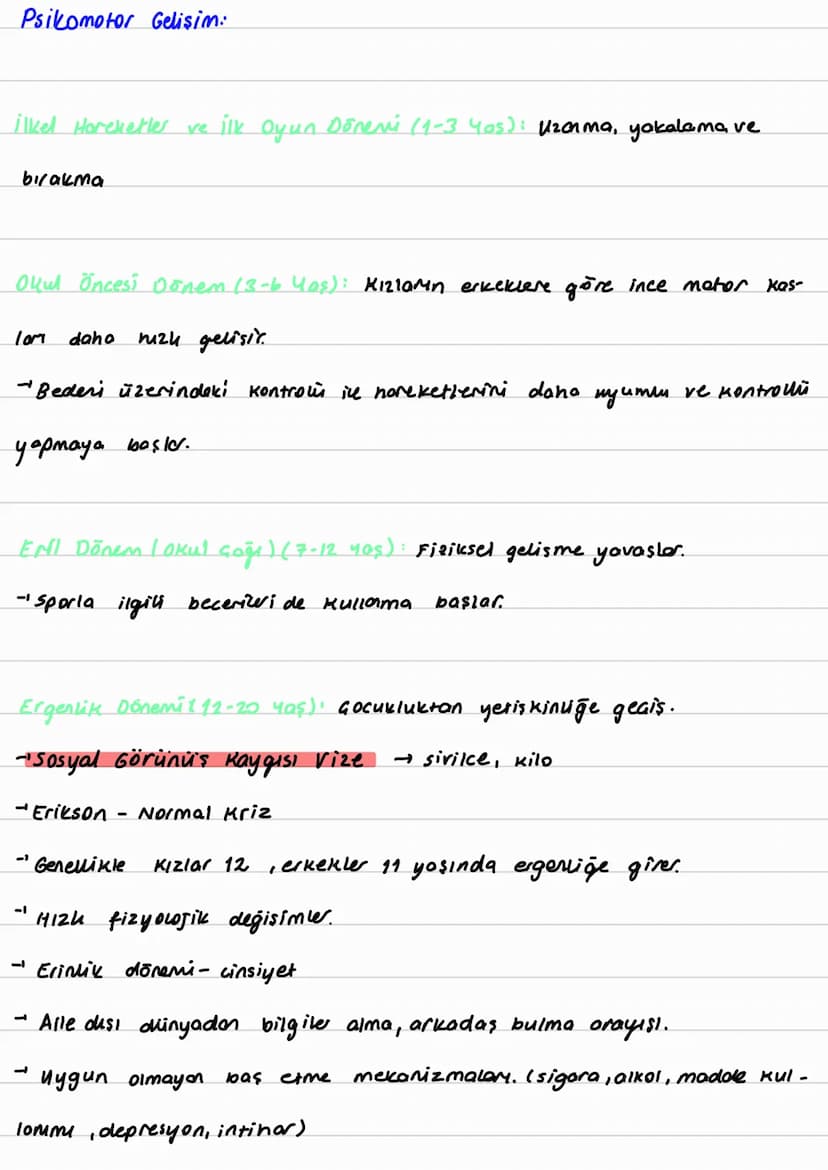 Psikomotor Gelişim:
İlkel Hareketler ve İlk Oyun Dönemi (1-3 Yaş): Uzanma, yakalama ve
bırakma
Okul Öncesi Dönem (3-6 Yaş): Kızların erkeklere göre ince motor kas-
ları daha hızlı gelişir.
→ Bedeni üzerindeki kontrolü ile hareketlerini daha uyumlu ve kontrollü
yapmaya başlar.
Dönem (Okul Çağı) (7-12 yaş): Fiziksel gelişme yavaşlar.
→ Sporla ilgili becerileri de kullanma başlar.
Ergenlik Dönemi (12-20 yaş): Çocukluktan yetişkinliğe geçiş.
→ Sosyal Görünüş Kaygısı Vize → sivilce, kilo
→ Erikson - Normal Kriz
→ Genellikle kızlar 12, erkekler 11 yaşında ergenliğe girer.
→ Hızlı fizyolojik değişimler.
→ Erinlik dönemi - cinsiyet
→ Aile dışı dünyadan bilgiler alma, arkadaş bulma arayışı.
→ Uygun olmayan baş etme mekanizmaları. (sigara, alkol, madde kul-
lanımı, depresyon, intihar)